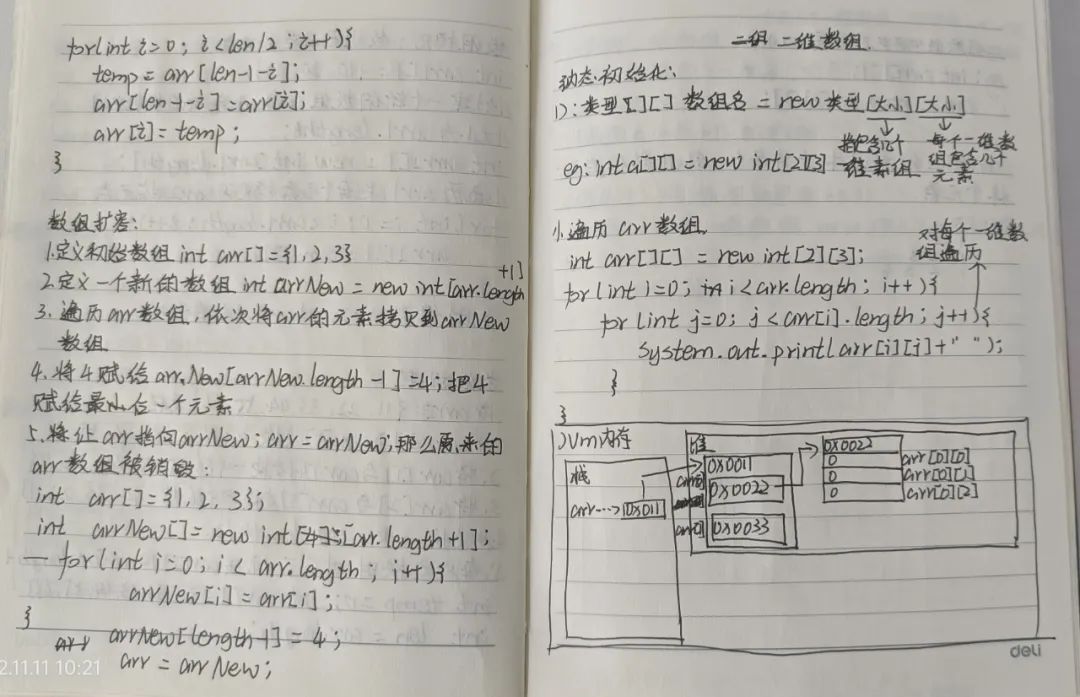 for(int i=0; i<len/2; i++){
temp=arr[len-1-i];
arr[len-1-i]=arr[i];
arr[i]=temp;
}
数组扩容:
1.定义初始数组 int arr[]={1,2,3}
+1]
2.定义一个新的数组 int arrNew = new int[arr.length
3.遍历arr数组,依次将arr的元素拷贝到arrNew
数组
4.将4赋给arrNew[arrNew.length-1]=4;把4
赋给最后一个元素
5.将让arr指向arrNew; arr=arrNew;那么原来的
arr数组被销毁:
int arr[]={1,2,3};
int arrNew[]=new int[arr.length+1];
for(int i=0; i<arr.length; i++){
arrNew[i]=arr[i];
}
arrNew[length-1]=4;
arr=arrNew;
2.11.11 10:21
二组 二维数组
动态初始化:
1):类型[][] 数组名 = new 类型[大小][大小]
指包含几个 每个一维数
eg: int a[][] = new int[2][3] 维素组 组包含几个
元素
1.遍历 arr 数组 对每个一维数
int arr[][] = new int[2][3]; 组遍历
for(int i=0; i<arr.length; i++){
for(int j=0; j<arr[i].length; j++){
System.out.print(arr[i][j]+" ");
}
}
JVM内存
栈
arr--->0x011
0x0011
0x0022
0x0033
0x0022
0 arr[0][0]
0 arr[0][1]
0 arr[0][2]
deli